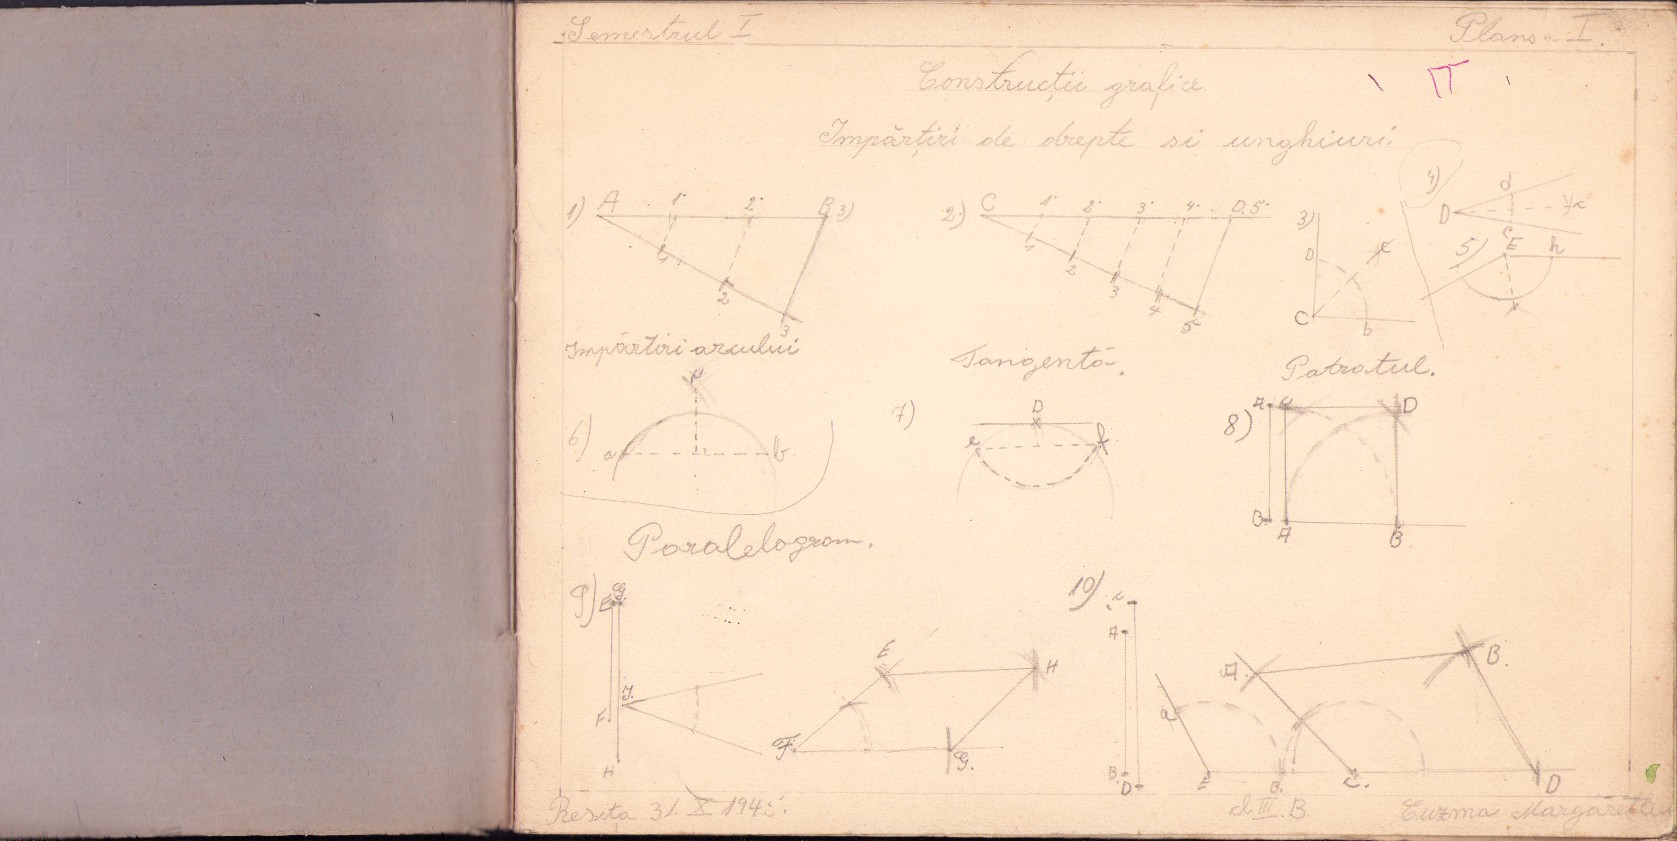 Semestrul I Planșa I.
Construcții grafice.
Impărțiri de drepte si unghiuri.
1) A 1' 2' B 3)
1 2 3
2) C 1' 2' 3' 4' D 5'
1 2 3 4 5
3) D C b
4) D d e
5) E h
Impărtiri arcului Tangentă. Patratul.
6) a b
7) D e f
8) A D
B A B
Paralelogram.
9) E G J. F H
E H F G.
10) A B D
A. B.
a E B. C. D
Resita 31 X 1945. cl III. B. Cuzma Margareta